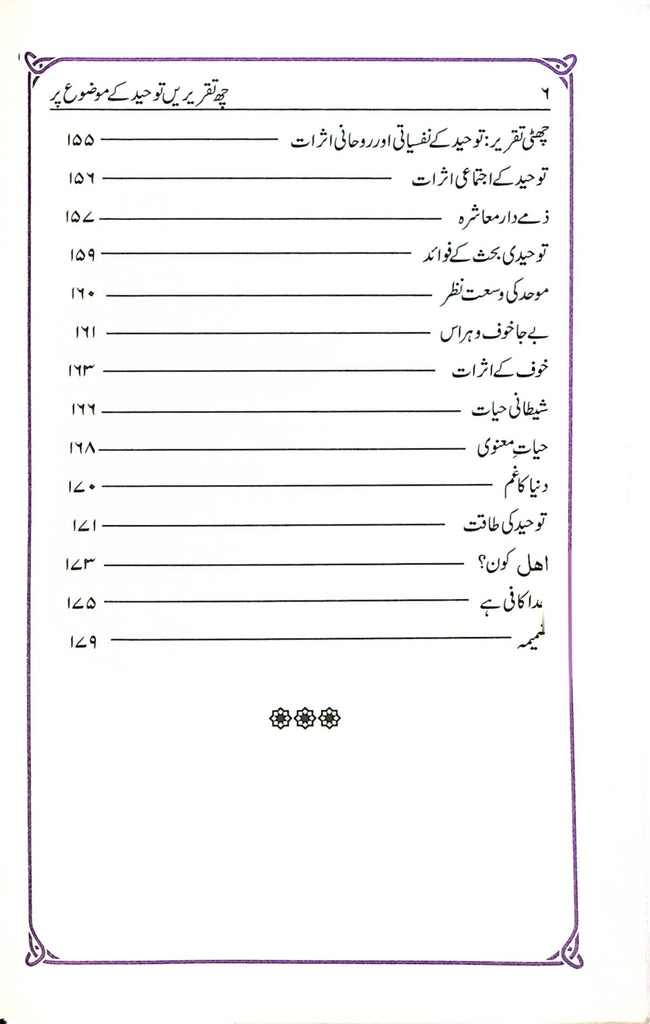 ۶ چھ تقریریں توحید کے موضوع پر
چھٹی تقریر: توحید کے نفسیاتی اور روحانی اثرات ۱۵۵
توحید کے اجتماعی اثرات ۱۵۶
ذمے دار معاشرہ ۱۵۷
توحیدی بحث کے فوائد ۱۵۹
موحد کی وسعت نظر ۱۶۰
بے جا خوف و ہراس ۱۶۱
خوف کے اثرات ۱۶۳
شیطانی حیات ۱۶۶
حیاتِ معنوی ۱۶۸
دنیا کا غم ۱۷۰
توحید کی طاقت ۱۷۱
اھل کون؟ ۱۷۳
کافی ہے ۱۷۵
ضمیمہ ۱۷۹